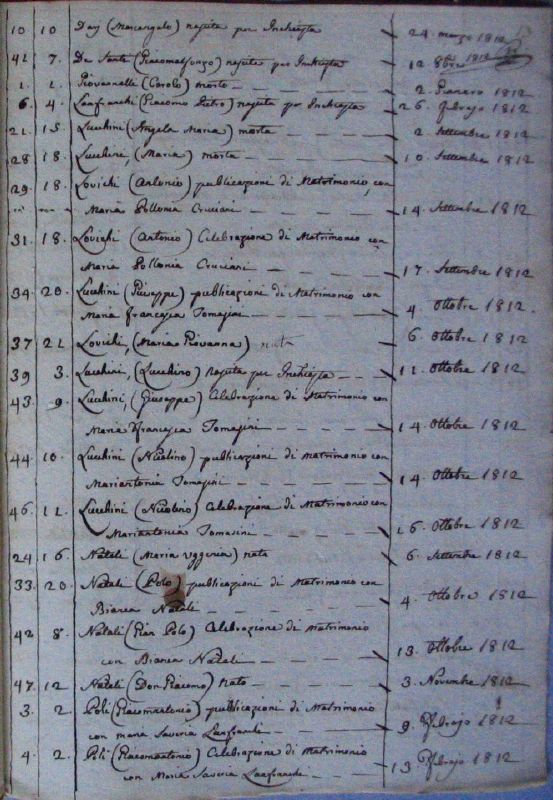 10 10 Day (Marcangelo) nascita per Inchiesta 24 marzo 1812
41 7. De Santi (Giacomalfonzo) nascita per Inchiesta 12 8bre 1812
1. 1. Giovannelli (Carolo) morto 2. Gianero 1812
6. 4. Lanfranchi (Giacomo Pietro) nascita per Inchiesta 26 febrajo 1812
21. 15 Lucchini (Angela Maria) morta 2. Settembre 1812
28 18. Lucchini, (Maria) morta 10. Settembre 1812
29. 18. Lovichi (Antonio) publicazioni di Matrimonio, con
Maria Pollonia Cruciani 14. Settembre 1812
31. 18. Lovichi (Antonio) Celebrazione di Matrimonio con
Maria Pollonia Cruciani 17. Settembre 1812
34. 20. Lucchini (Giuseppe) publicazioni di Matrimonio con
Maria francesca Tomasini 4. Ottobre 1812.
37 21 Lovichi, (Maria Giovanna) nata 6. Ottobre 1812
39 3. Lucchini, (Lucchino) Nascita per Inchiesta 11. Ottobre 1812
43. 9. Lucchini, (Giuseppe) Celebrazione di Matrimonio con
Maria francesca Tomasini 14. Ottobre 1812
44. 10. Lucchini (Nicolino) publicazioni di Matrimonio con
Mariantonia Tomasini 14. Ottobre 1812
46. 11. Lucchini (Nicolino) Celebrazione di Matrimonio con
Mariantonia Tomasini 16. Ottobre 1812
24 16 Natali (Maria Uggenia) nata 6. Settembre 1812
33. 20. Natali (Polo) publicazioni di Matrimonio con
Bianca Natali 4. Ottobre 1812
42 8. Natali (Gian Polo) Celebrazione di Matrimonio
con Bianca Natali 13. Ottobre 1812
47. 12 Natali (Don Giacomo) nato 3. Novembre 1812
3. 2. Poli (Giacomantonio) publicazioni di Matrimonio
con maria Saveria Lanfranchi 9. febrajo 1812
4. 2. Poli (Giacomantonio) Celebrazione di Matrimonio
con Maria Saveria Lanfranchi 13 febrajo 1812